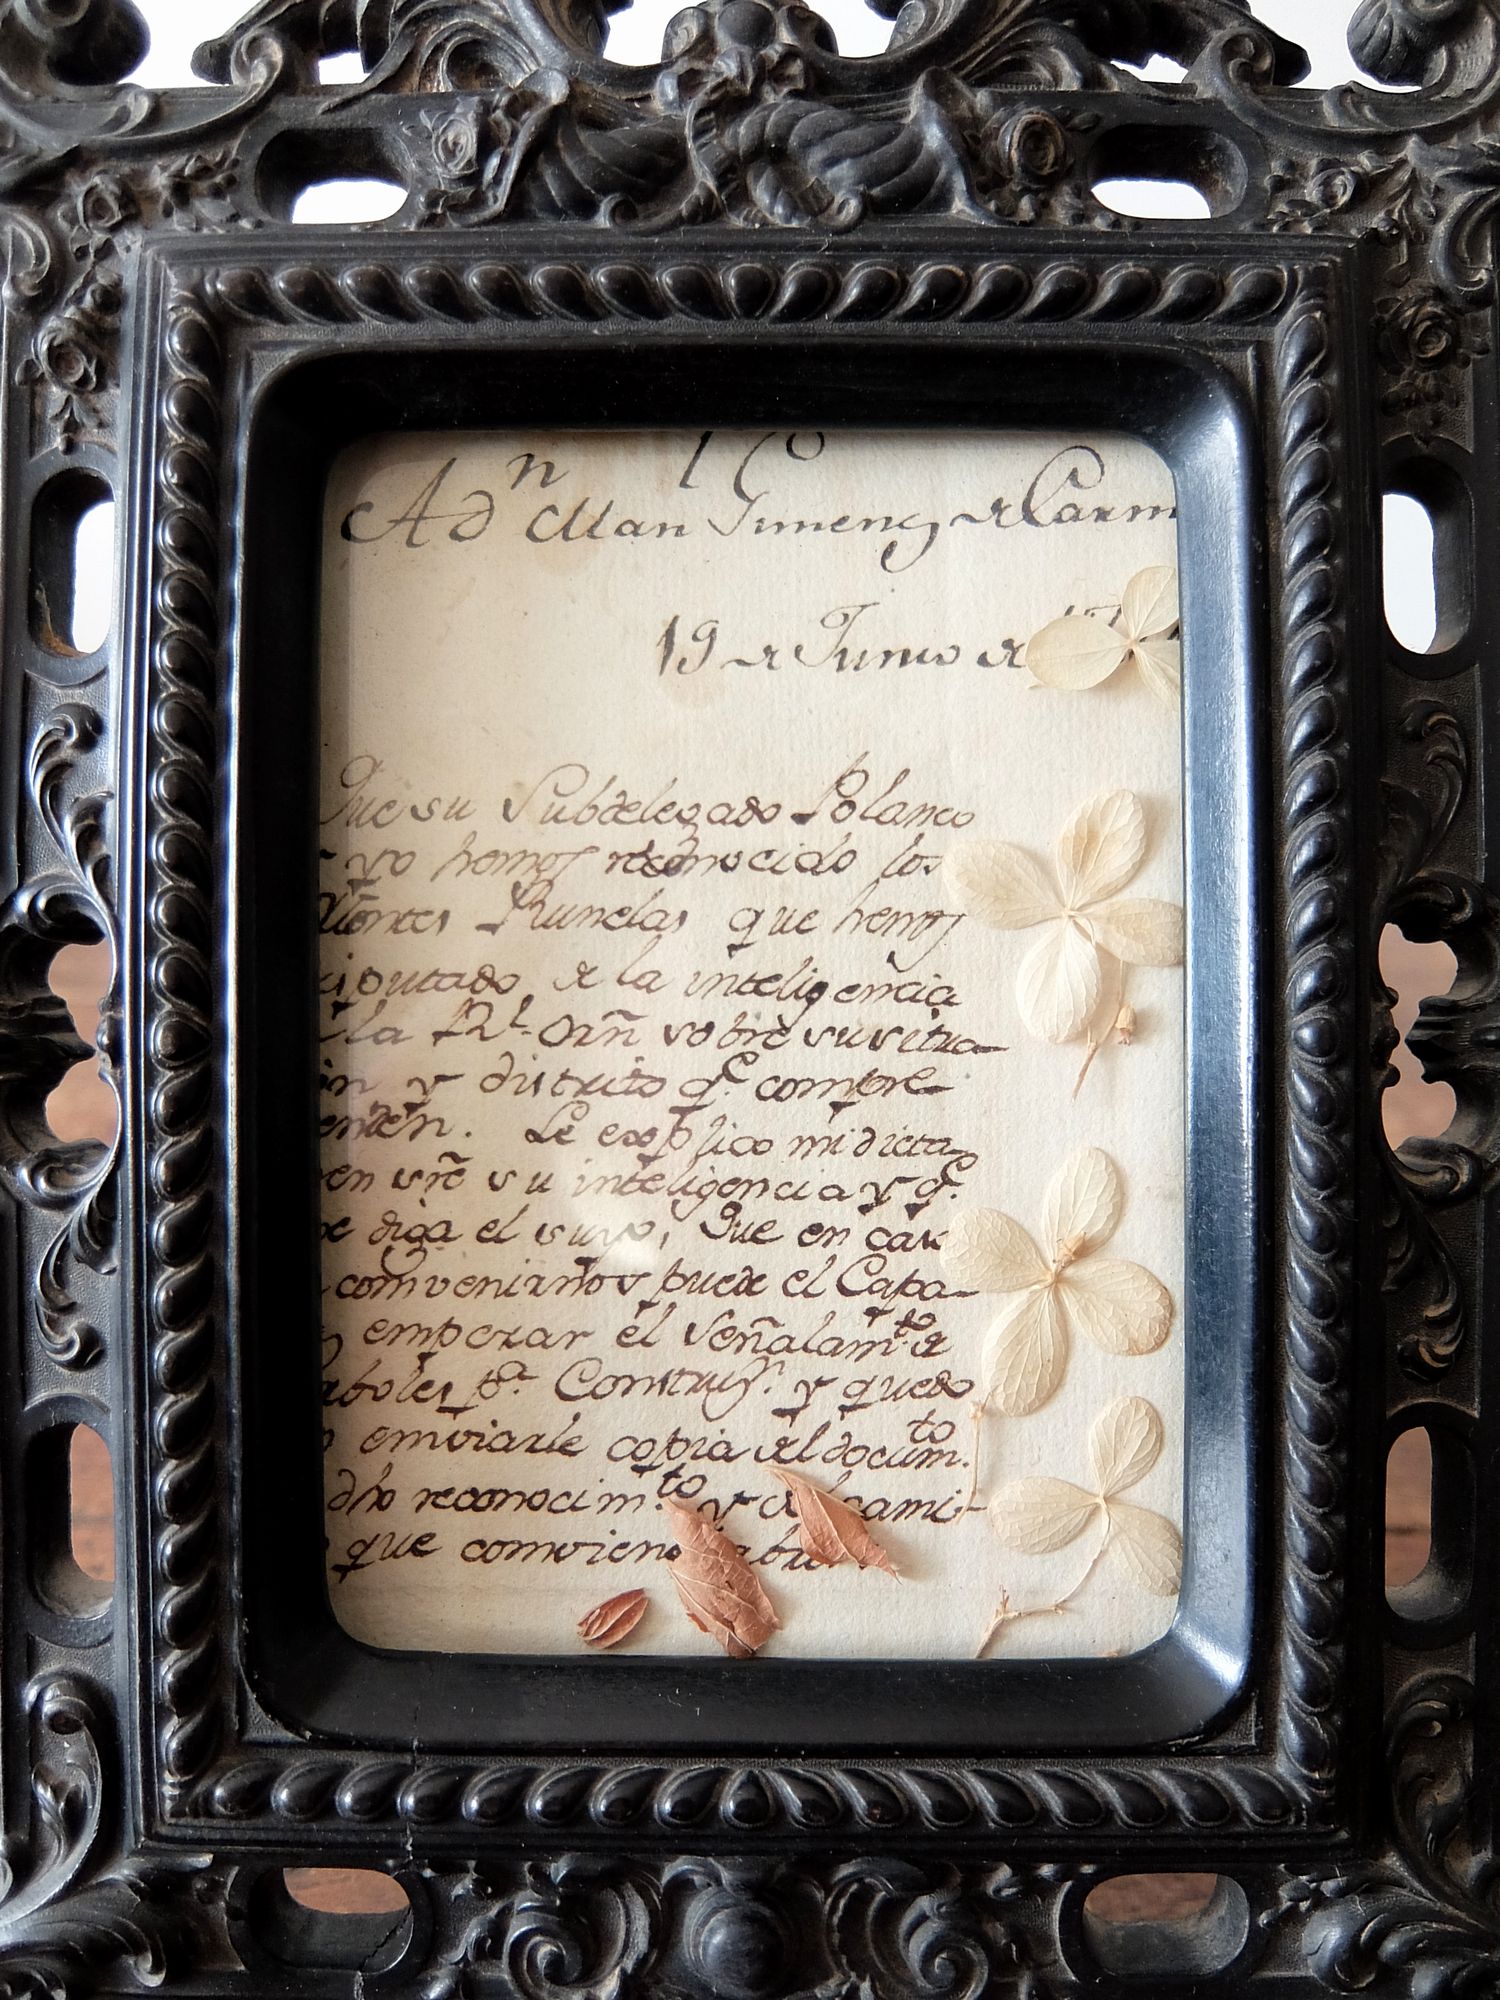 A Dn Man Gimenez de Carm
19 de Junio de
Que su Subdelegado Polanco
yo hemos reconocido los
Montes Runelas que hemos
putado de la inteligencia
la Rl. Orñ sobre su situa-
ón y distrito q.e compre-
enden. Le explico mi dicta-
en sre su inteligencia y q.e
diga el suyo, Que en caso
convenirnos puede el Capa-
z empezar el señalam.to de
arboles p.a Construy.n y quedo
enviarle copia del docum.to
dho reconocim.to y del cami-
que conviene abrir